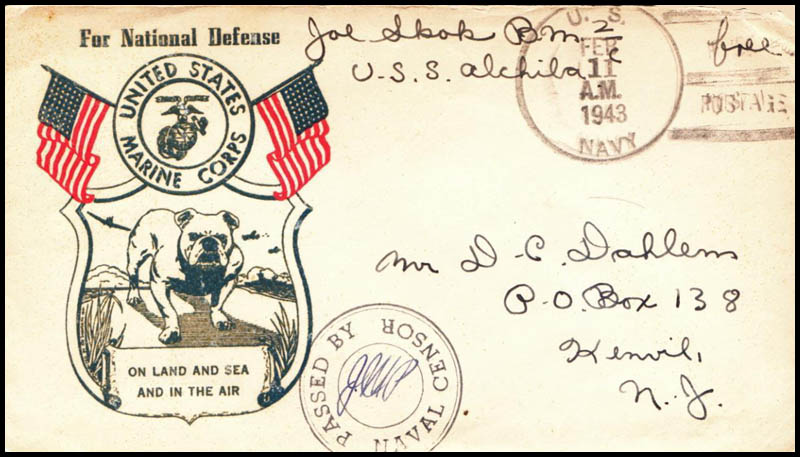 For National Defense
UNITED STATES
MARINE CORPS
ON LAND AND SEA
AND IN THE AIR
Joe Skok B.M. 2/c
U.S.S. Alchiba
U. S.
FEB
11
A.M.
1943
NAVY
free
POSTAGE
Mr D-C. Dahlems
P-O. Box 138
Kenvil,
N. J.
PASSED BY
NAVAL CENSOR